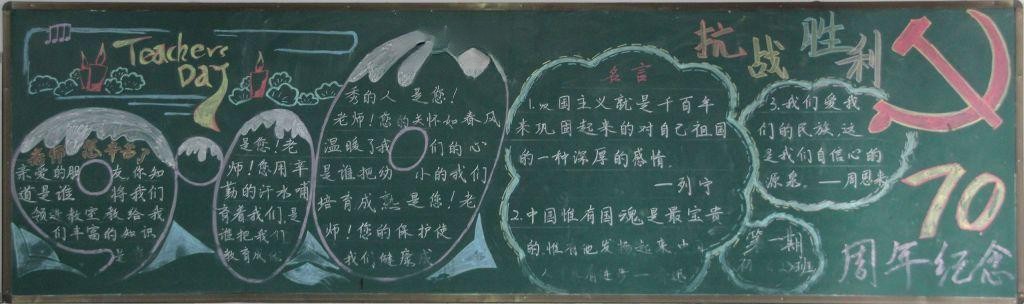 Teachers
Day
老师！您辛苦了
亲爱的朋友,你知
道是谁 将我们
领进教室教给我
们丰富的知识
是您!老
师!您用辛
勤的汗水哺
育着我们是
谁把我们
教育成
秀的人 是您!
老师!您的关怀如春风
温暖了我们的心
是谁把幼小的我们
培育成熟是您!老
师!您的保护使
我们健康成
名言
国主义就是千百年
来巩固起来的对自己祖国
的一种深厚的感情。
—列宁
2.中国惟有国魂是最宝贵
的惟有他发扬起来
抗战胜利
3.我们爱我
们的民族,这
是我们自信心的
源泉。——周恩来
第一期
班
70
周年纪念